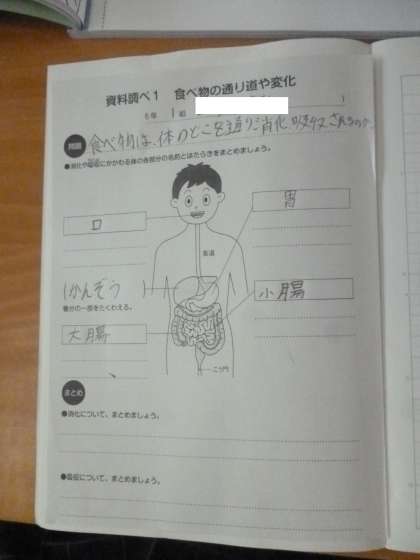 資料調べ1 食べ物の通り道や変化
6年 1 組 )
問題 食べ物は、体のどこを通り、消化、吸収されるのか。
●消化や吸収にかかわる体の各部分の名前とはたらきをまとめましょう。
口
胃
食道
かんぞう
養分の一部をたくわえる。
小腸
大腸
こう門
まとめ
●消化について、まとめましょう。
●吸収について、まとめましょう。